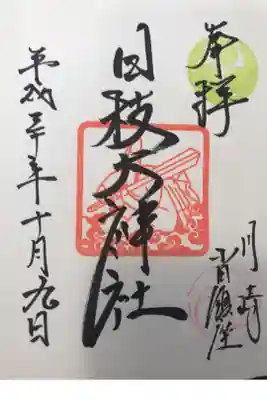 奉拝
川崎
日枝大神社
平成三十年十月九日